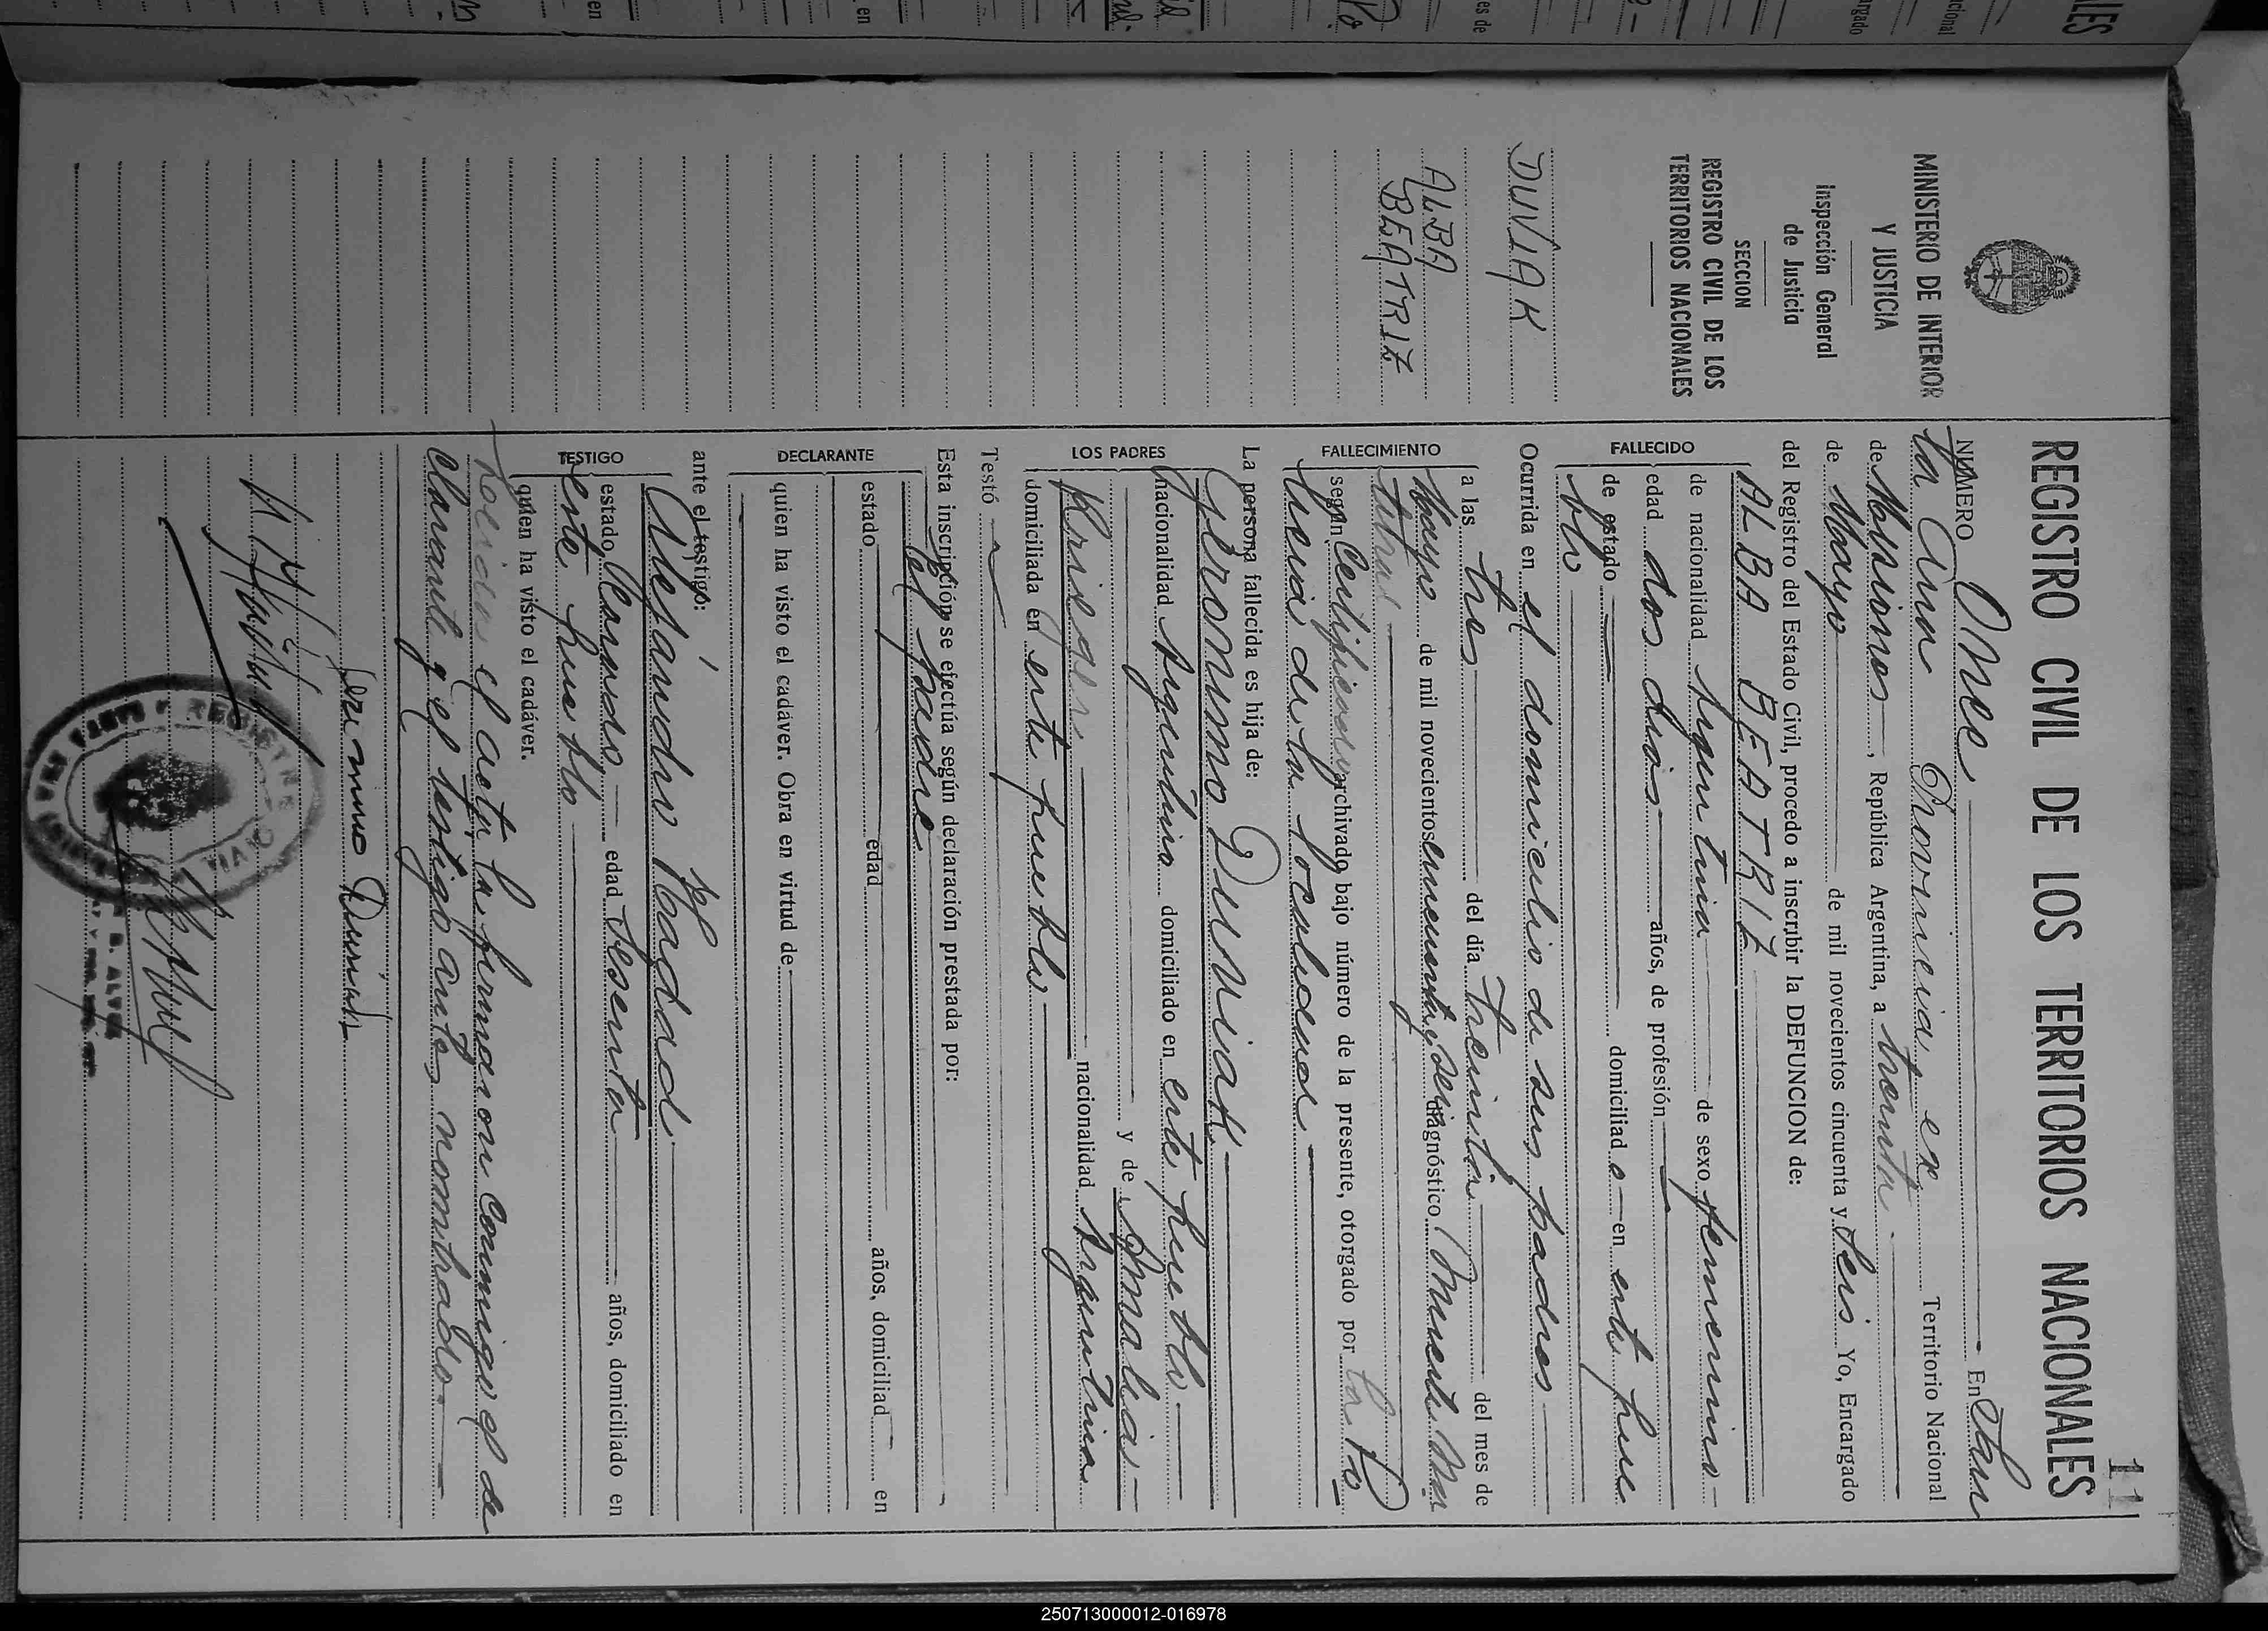 11
REGISTRO CIVIL DE LOS TERRITORIOS NACIONALES
MINISTERIO DE INTERIOR
Y JUSTICIA
Inspección General
de Justicia
SECCION
REGISTRO CIVIL DE LOS
TERRITORIOS NACIONALES
DUVIAK
ALBA
BEATRIZ
NUMERO Once En San
ta Ana Provincia ex Territorio Nacional
de Misiones, República Argentina, a treinta
de Mayo de mil novecientos cincuenta y Seis Yo, Encargado
del Registro del Estado Civil, procedo a inscribir la DEFUNCION de:
FALLECIDO
ALBA BEATRIZ
de nacionalidad Argentina de sexo femenino
edad dos dias años, de profesión
de estado domiciliad o en este pue
blo
Ocurrida en el domicilio de sus padres
FALLECIMIENTO
a las tres del día treinta del mes de
Mayo de mil novecientos cincuenta y seis diagnóstico Muerte
según Certificado archivado bajo número de la presente, otorgado por la Po
licia de la localidad
La persona fallecida es hija de:
LOS PADRES
Geronimo Duviak
nacionalidad Argentino domiciliado en este pueblo
y de Amalia
Krieger nacionalidad Argentina
domiciliada en este pueblo
Testó
Esta inscripción se efectúa según declaración prestada por:
DECLARANTE
el padre
estado edad años, domiciliad en
quien ha visto el cadáver. Obra en virtud de
ante el testigo:
TESTIGO
Alejandro Haddad
estado Casado edad Sesenta años, domiciliado en
este pueblo
quien ha visto el cadáver.
Leida el acta la firmaron conmigo el de
clarante y el testigo antes nombrado.
Jerónimo Duviak
REGISTRO CIVIL
B. ALVES
250713000012-016978